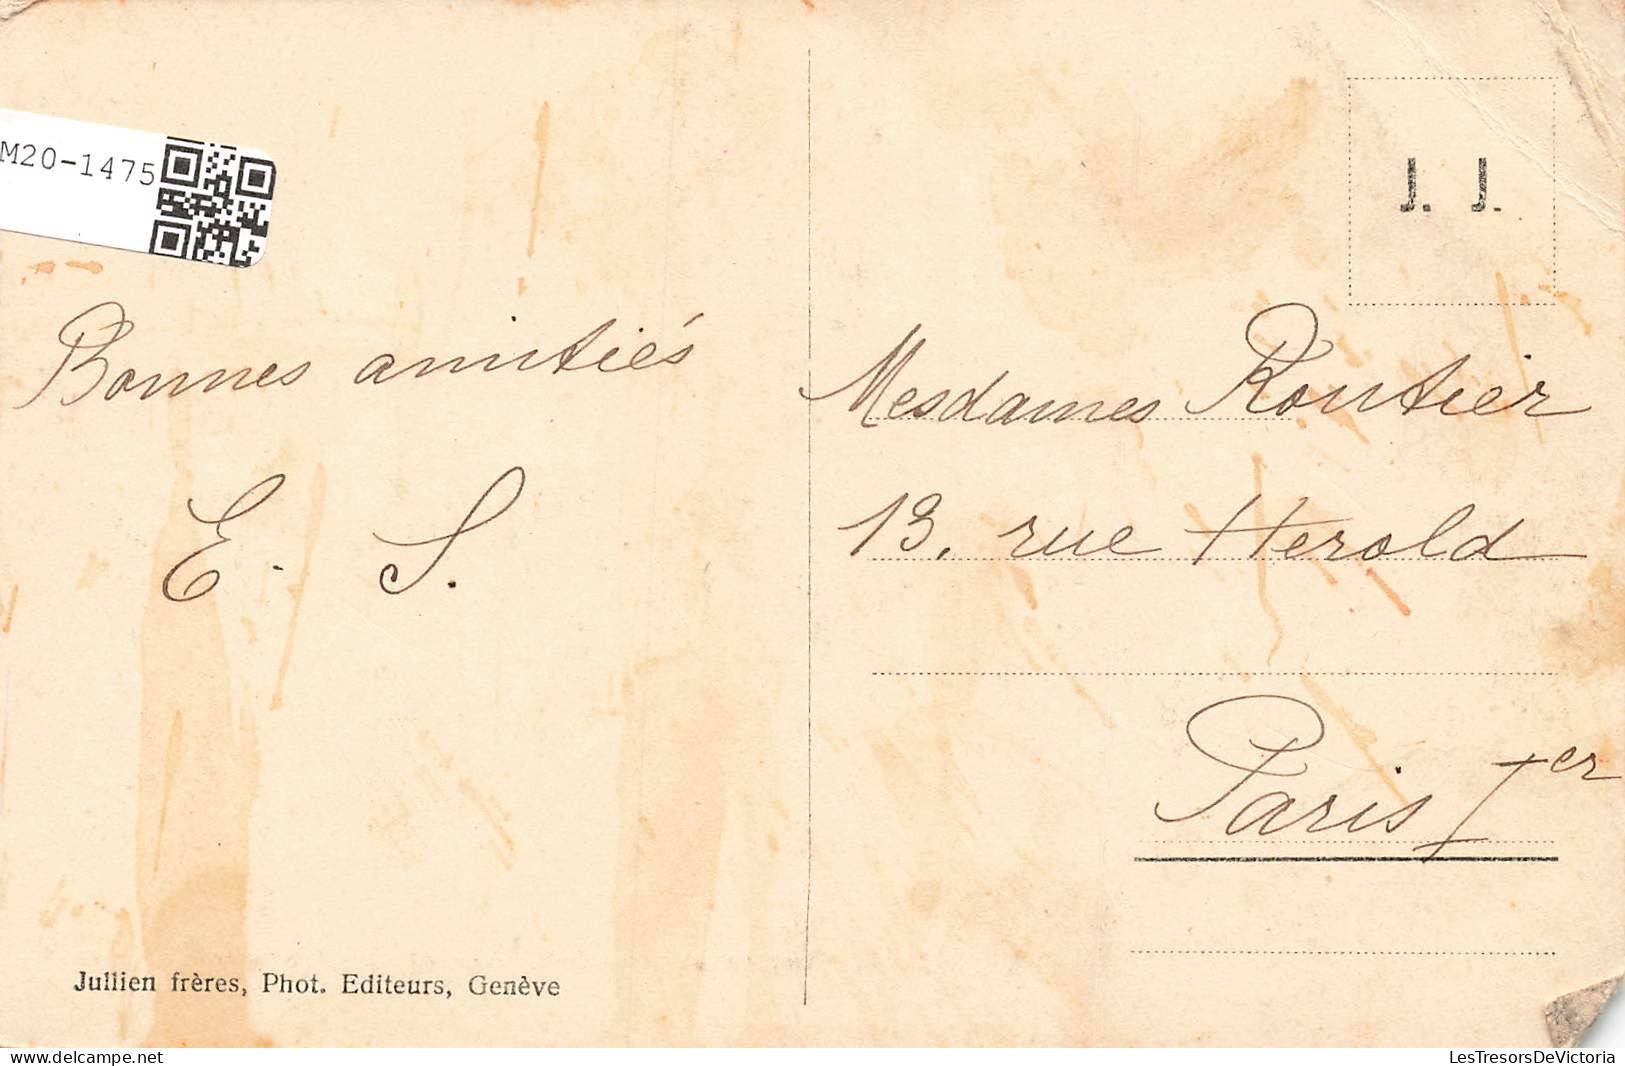 M20-1475
J. J.
Bonnes amitiés
E. S.
Mesdames Routier
13, rue Herold
Paris Ier
Jullien frères, Phot. Editeurs, Genève
delcampe.net
LesTresorsDeVictoria